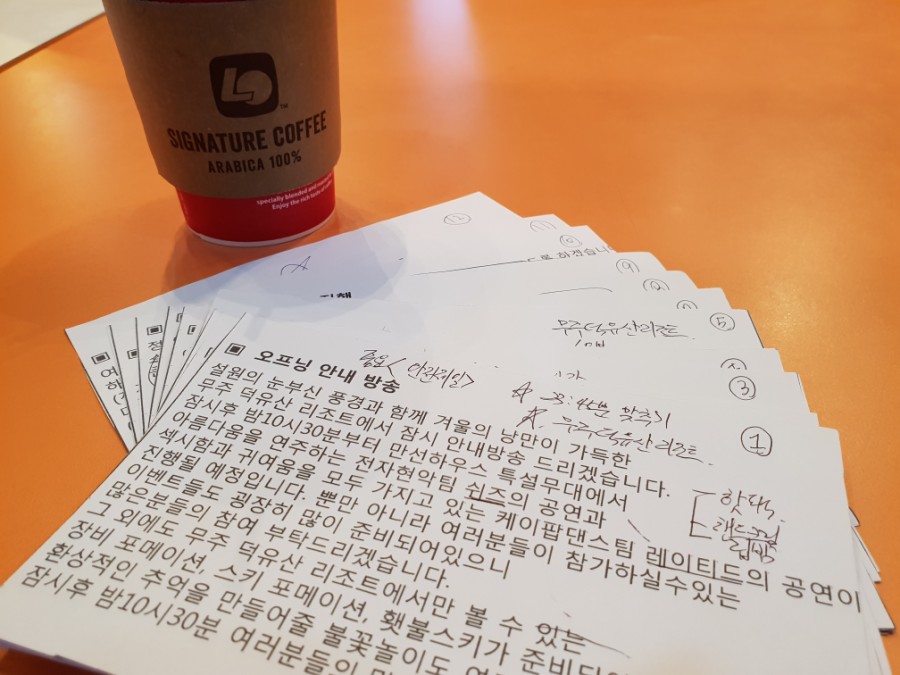 LO
TM
SIGNATURE COFFEE
ARABICA 100%
specially blended and
Enjoy the rich taste of
A
12
11
10
로 하겠습니
9
무주덕유산리조트
5
3
1
▣ 오프닝 안내 방송
중요
무주덕유산리조트
핫팩
설원의 눈부신 풍경과 함께 겨울의 낭만이 가득한
무주 덕유산 리조트에서 잠시 안내방송 드리겠습니다.
잠시후 밤10시30분부터 만선하우스 특설무대에서
아름다움을 연주하는 전자현악팀 쉰즈의 공연과
섹시함과 귀여움을 모두 가지고 있는 케이팝댄스팀 레이티드의 공연이
진행될 예정입니다. 뿐만 아니라 여러분들이 참가하실수있는
이벤트들도 굉장히 많이 준비되어있으니
많은분들의 참여 부탁드리겠습니다.
그 외에도 무주 덕유산 리조트에서만 볼 수 있는
장비 포메이션, 스키 포메이션, 횃불스키가 준비되
환상적인 추억을 만들어줄 불꽃놀이도
잠시후 밤10시30분 여러분들의